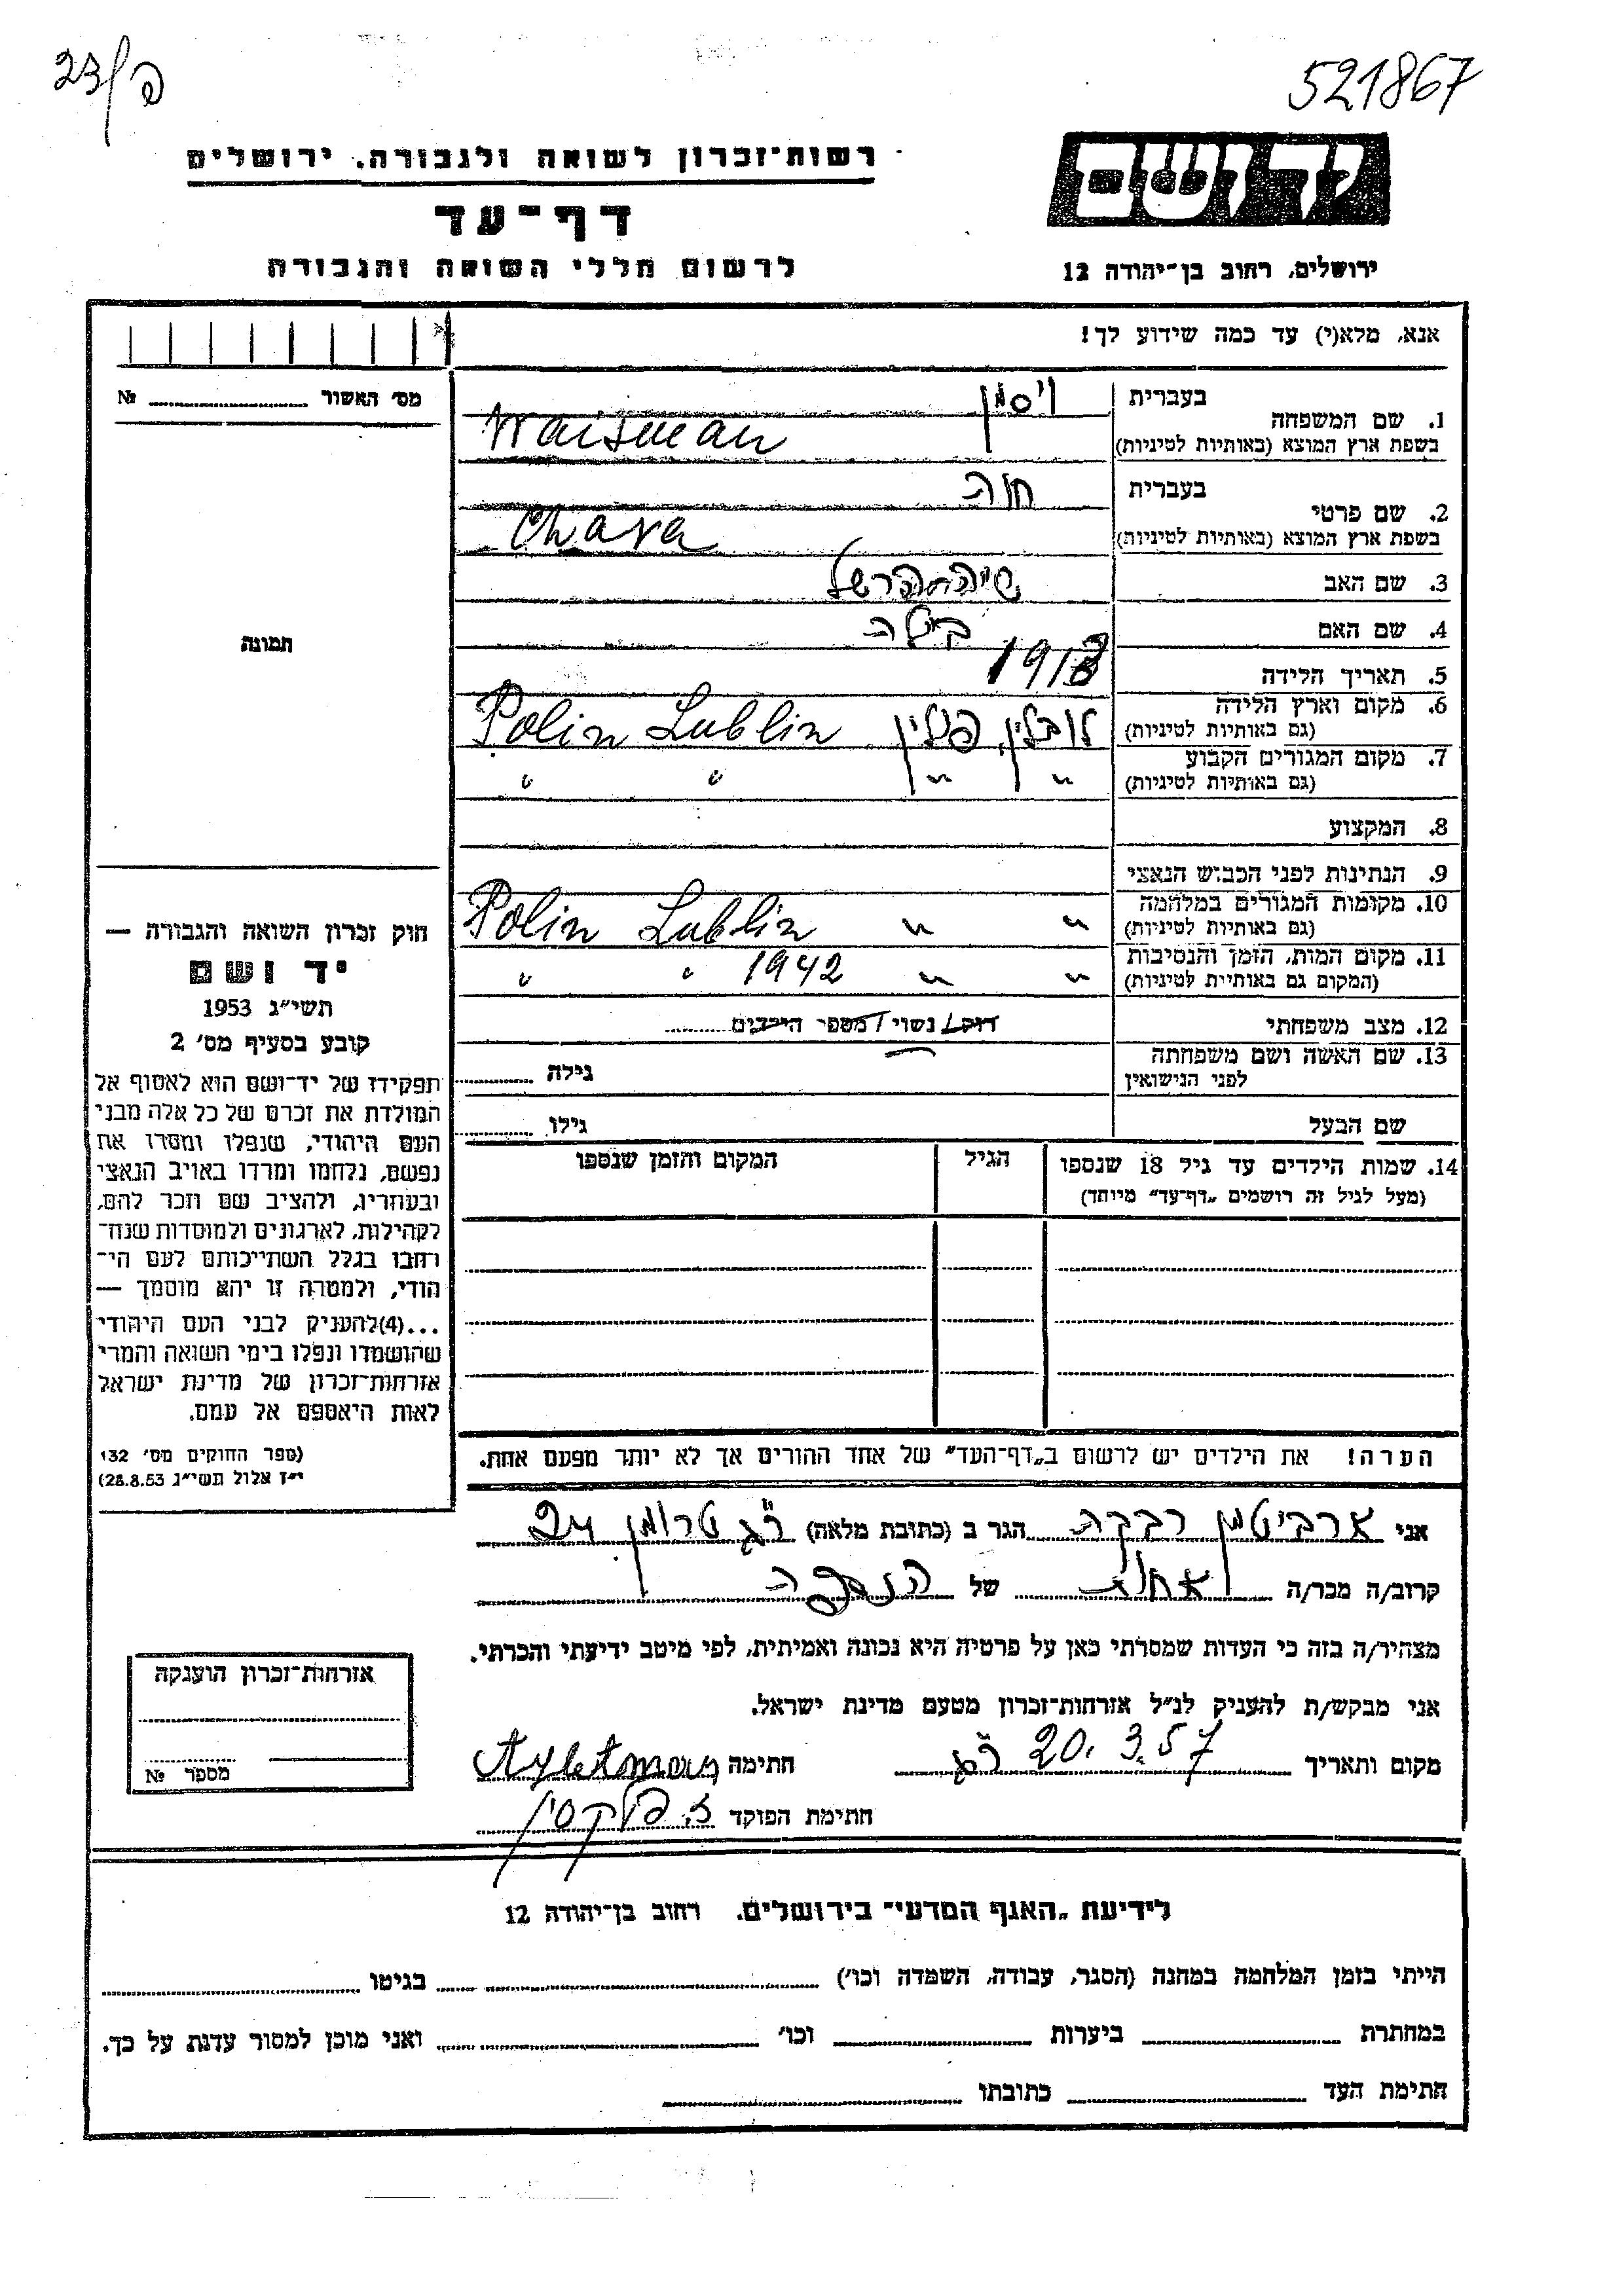 23/פ
521867
יד ושם
רשות־זכרון לשואה ולגבורה. ירושלים
דף־עד
לרשום חללי השואה והגבורה
ירושלים, רחוב בן־יהודה 12
אנא, מלא(י) עד כמה שידוע לך!
מס׳ האשור № 
1. שם המשפחה
בעברית ויסמן
בשפת ארץ המוצא (באותיות לטיניות) Waisman
2. שם פרטי
בעברית חוה
בשפת ארץ המוצא (באותיות לטיניות) Chava
3. שם האב
4. שם האם
5. תאריך הלידה
6. מקום וארץ הלידה (גם באותיות לטיניות) לובלין, פולין Polin Lublin
7. מקום המגורים הקבוע (גם באותיות לטיניות) " " " "
8. המקצוע
9. הנתינות לפני הכבוש הנאצי
10. מקומות המגורים במלחמה (גם באותיות לטיניות) " " Polin Lublin
11. מקום המות, הזמן והנסיבות (המקום גם באותיות לטיניות) " " 1942 " "
12. מצב משפחתי רוק/ נשוי / מספר הילדים
13. שם האשה ושם משפחתה לפני הנישואין גילה
שם הבעל גילו
14. שמות הילדים עד גיל 18 שנספו
(מעל לגיל זה רושמים „דף־עד״ מיוחד)
הגיל
המקום והזמן שנספו
תמונה
חוק זכרון השואה והגבורה —
יד ושם
תשי״ג 1953
קובע בסעיף מס׳ 2
תפקידו של יד־ושם הוא לאסוף אל
המולדת את זכרם של כל אלה מבני
העם היהודי, שנפלו ומסרו את
נפשם, נלחמו ומרדו באויב הנאצי
ובעוזריו, ולהציב שם וזכר להם,
לקהילות, לארגונים ולמוסדות שנח־
רחבו בגלל השתייכותם לעם הי־
הודי, ולמטרה זו יהא מוסמך —
...(4)להעניק לבני העם היהודי
שהושמדו ונפלו בימי השואה והמרי
אזרחות־זכרון של מדינת ישראל
לאות היאספם אל עמם.
(ספר החוקים מס׳ 132
י״ז אלול תשי״ג 28.8.53)
הערה! את הילדים יש לרשום ב„דף־העד״ של אחד ההורים אך לא יותר מפעם אחת.
אני ארביטמן רבקה הגר ב (כתובת מלאה) ר״ג טרומן 24
קרוב/ה מכר/ה אחות של הנספה
מצהיר/ה בזה כי העדות שמסרתי כאן על פרטיה היא נכונה ואמיתית, לפי מיטב ידיעתי והכרתי.
אני מבקש/ת להעניק לנ״ל אזרחות־זכרון מטעם מדינת ישראל.
מקום ותאריך 20.3.57 ר״ג חתימה
חתימת הפוקד
אזרחות־זכרון הוענקה
מספר №
לידיעת „האגף המדעי״ בירושלים. רחוב בן־יהודה 12
הייתי בזמן המלחמה במחנה (הסגר, עבודה, השמדה וכו׳) בגיטו
במחתרת ביערות וכו׳ ואני מוכן למסור עדות על כך.
חתימת העד כתובתו